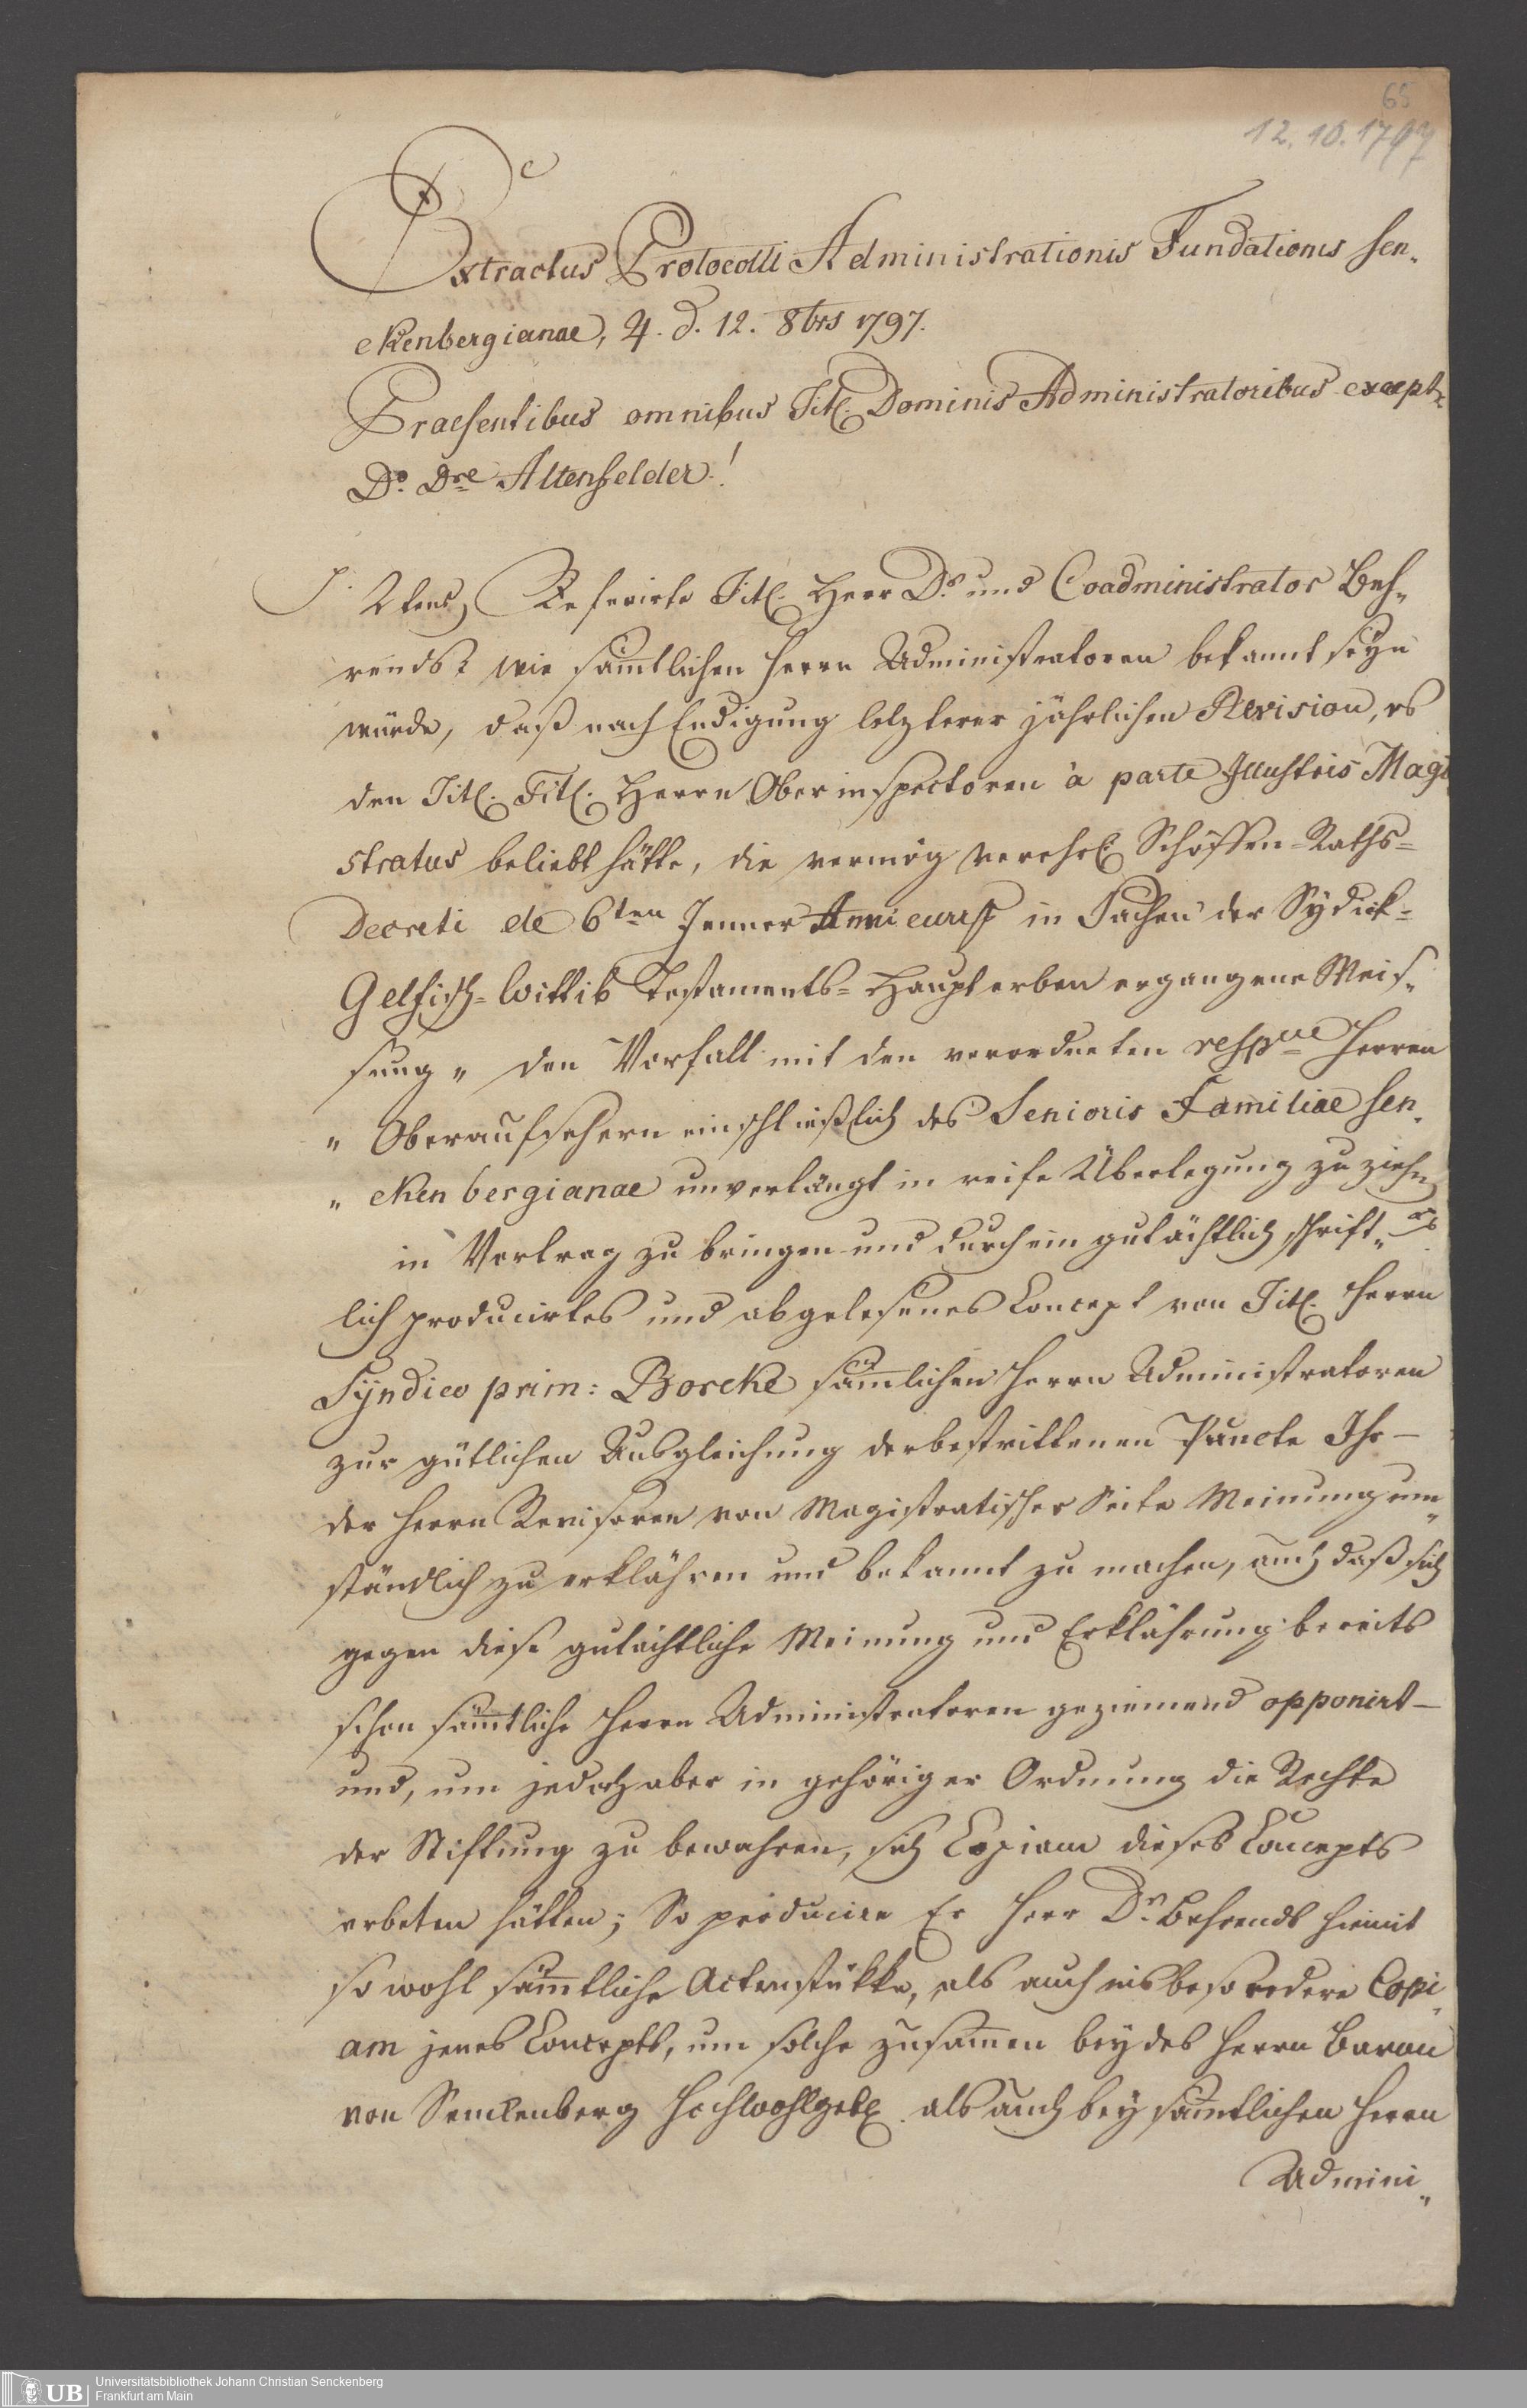 65
12. 10. 1797
Extractus Protocolli Administrationis Fundationis Sen„
ckenbergianae, 4. d. 12. 8brs 1797.
Praesentibus omnibus Titl. Dominis Administratoribus except.
Do. Dre Altenfelder!
2tens, Referirte Titl. Herr Dr. und Coadministrator Beh„
rends: wie sämtlichen Herrn Administratoren bekannt seyn
würde, daß nach Endigung letzterer jährlichen Revision, es
den Titl. Titl. Herrn Oberinspectoren à parte Illustris Magi
stratus beliebt hätte, die vermög verehrl. Schöffen-Raths-
Decreti de 6ten Jenner Anni curr. in Sachen der Sydick-
Gelfisch-Wittib Testaments-Haupterben ergangene Weis„
sung „ den Vorfall mit den verordneten respve Herren
„ Oberaufsehern einschließlich des Senioris Familiae Sen„
„ ckenbergianae unverlängt in reife Überlegung zu ziehn
in Vortrag zu bringen und durch ein gutächtlich schrift„
lich producirtes und abgelesenes Concept von Titl. Herrn
Syndico prim: Borcke sämtlichen Herrn Administratoren
zur gütlichen Ausgleichung der bestrittenen Puncte Ihr-
der Herrn Revisoren von Magistratischer Seite Meinung um„
ständlich zu erklähren und bekannt zu machen, auch daß sich
gegen diese gutächtliche Meinung und Erklährung bereits
schon sämtliche Herrn Administratoren geziemend opponirt-
und, um jedoch aber in gehöriger Ordnung die Rechte
der Stiftung zu bewahren, sich Copiam dieses Concepts
erbeten hätten; So producire Er Herr Dr. Behrends hiemit
so wohl sämtliche Actenstükke, als auch insbesondere Copi„
am jenes Concepts, um solche zusamen bey des Herrn Baron
von Senckenberg Hochwohlgeb. als auch bey sämtlichen Herrn
Admini„
UB
Universitätsbibliothek Johann Christian Senckenberg
Frankfurt am Main